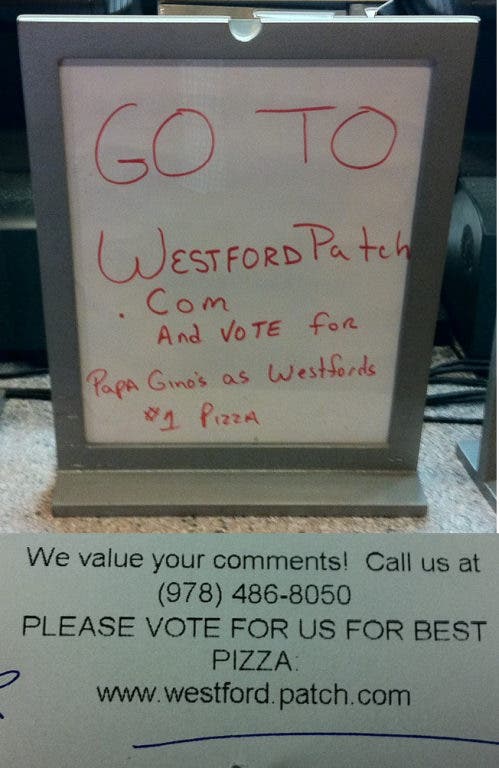 GO TO
WESTFORD Patch
.Com
And VOTE foR
PapA Gino's as Westfords
#1 PIZZA
We value your comments! Call us at
(978) 486-8050
PLEASE VOTE FOR US FOR BEST
PIZZA:
www.westford.patch.com